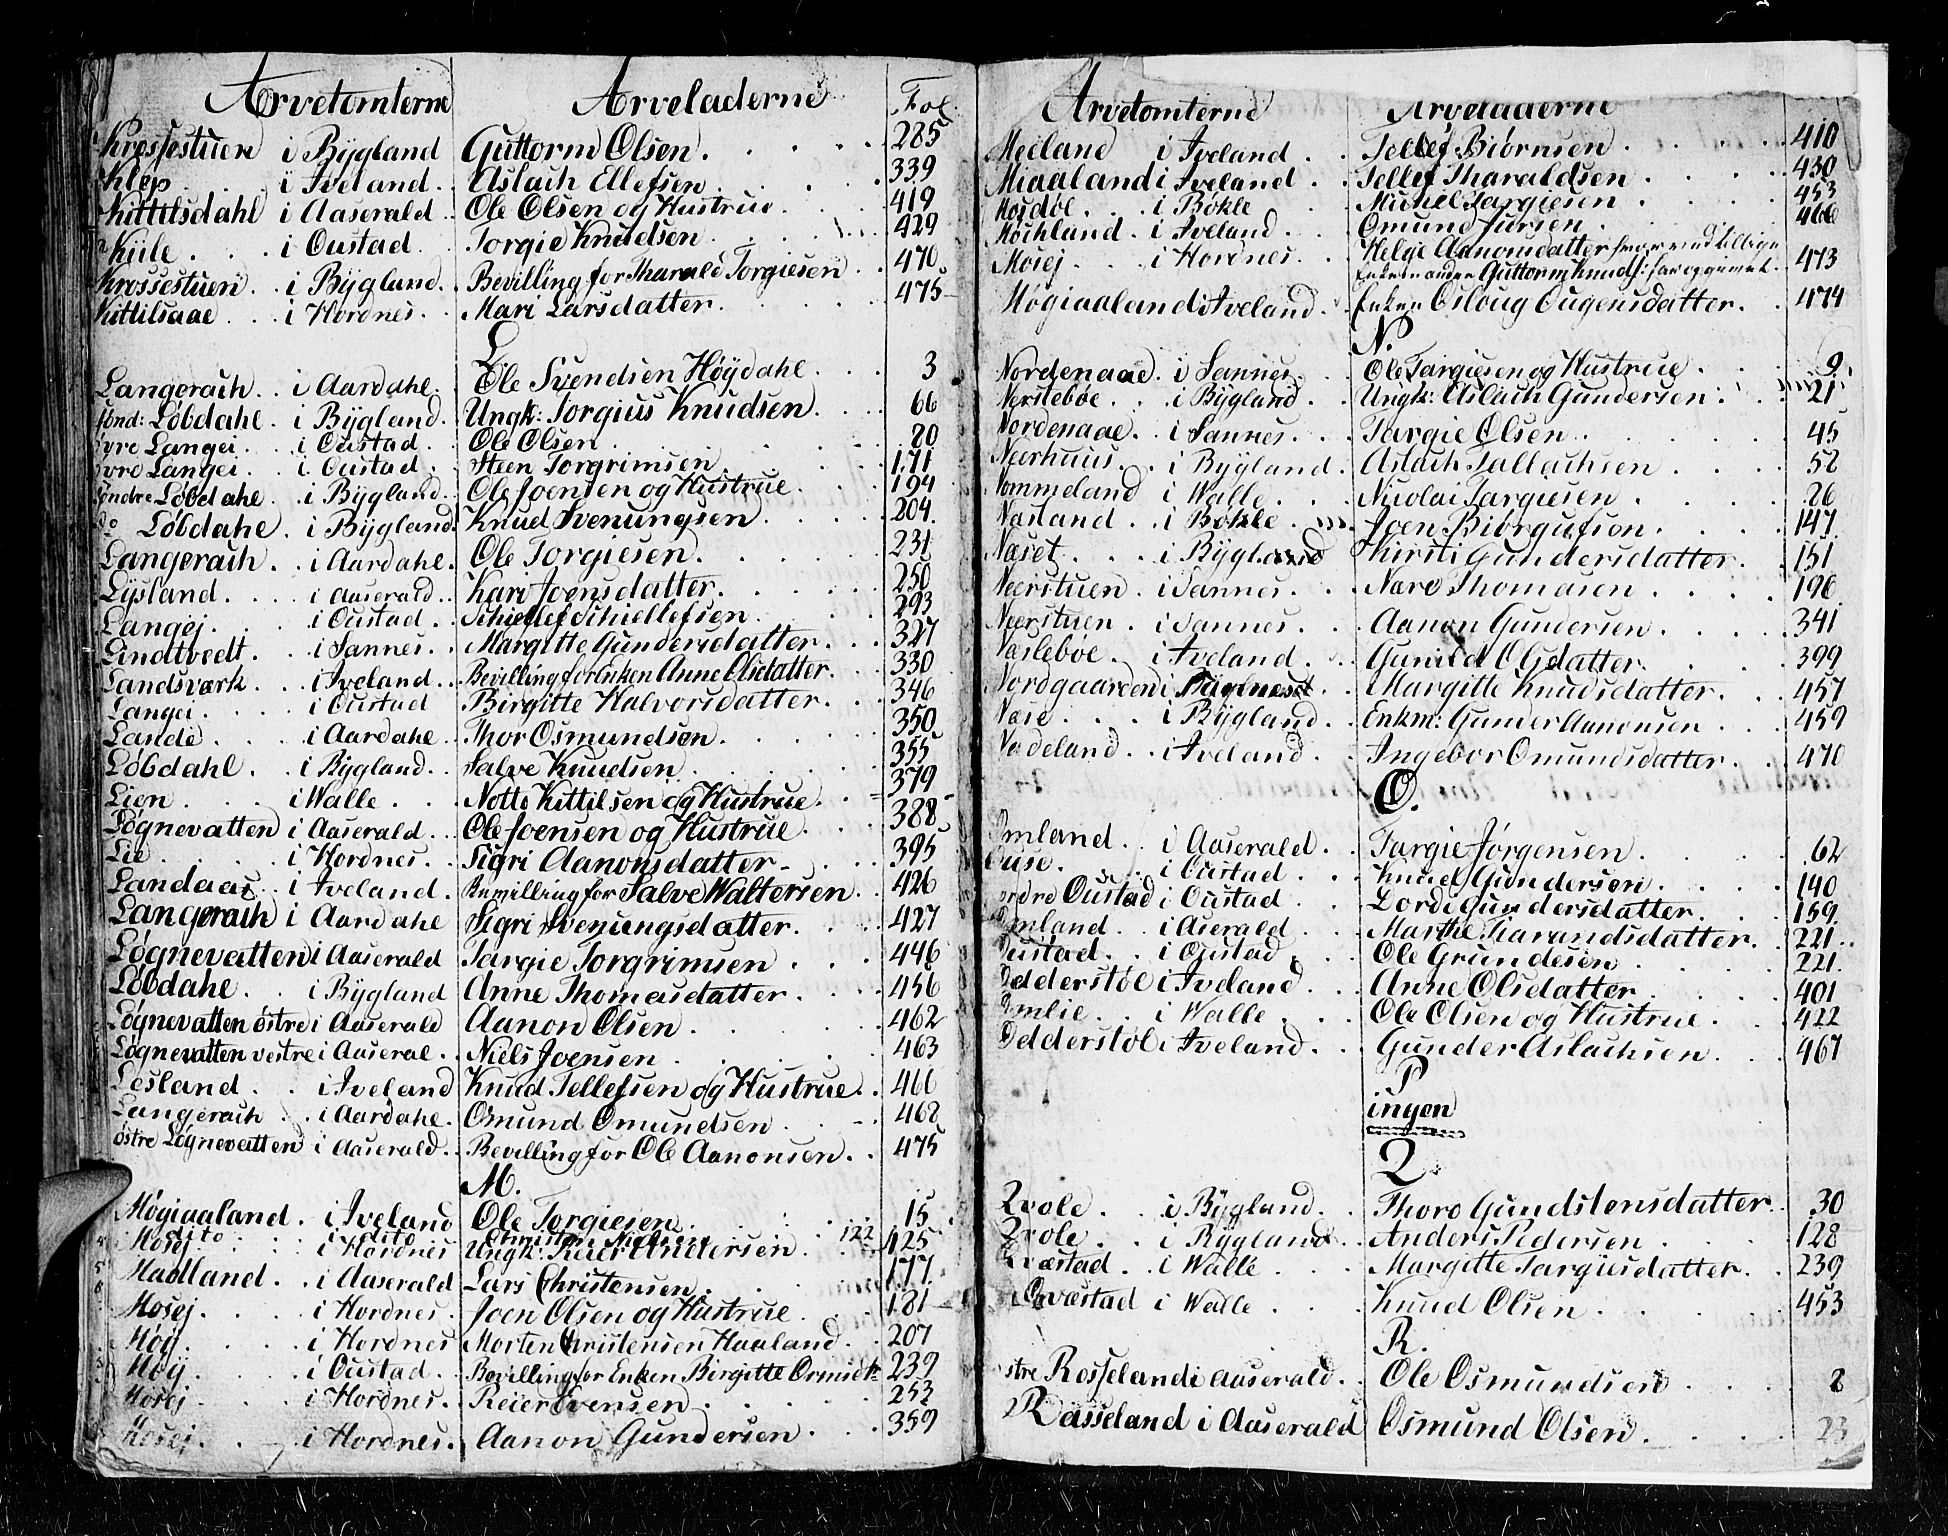 Arvetomterne Arveladerne Fol.
Krossestuen i Bÿgland Guttorm Olsen. 285
Klep i Iveland. Aslach Ellefsen 339
Kittilsdahl i Aaserald Ole Olsen og Hustrue 419
Kiile i Oustad Torgie Knudsen 429
Krossestuen i Bÿgland. Bevilling for Tharald Torgiesen 470
Kittilsaae i Hordnes. Mari Larsdatter 475
L.
Langerach i Aardahl. Ole Svendsen Høÿdahl 3
Sønd: Løbdahl i Bÿgland. Ungk: Torgius Knudsen. 66
øvre Langei i Oustad Ole Olsen 80
øvre Langei i Oustad Steen Torgrimsen 171
Søndre Løbdahl i Bÿgland Ole Joensen og Hustrue 194
do Løbdahl i Bÿgland. Knud Svenungsen 204.
Langerach i Aardahl. Ole Torgiesen 231
Lÿsland i Aaserald Kari Joensdatter 250
Langej. i Oustad Schiellef Schiellefsen 293
Lindtvedt. i Sannes. Margitte Gundersdatter 327
Landsværk i Iveland Bevilling for Enken Anne Olsdatter 330
Langei i Oustad Birgitte Halvorsdatter 346
Lande i Aardahl Thor Osmundsen 350
Løbdahl i Bÿgland Salve Knudsen 355
Lien i Walle Notto Kittilsen og Hustrue 379
Løgnevatten i Aaserald Ole Joensen og Hustrue 388
Lie i Hordnes Sigri Aanonsdatter 395
Landaas i Iveland Bevilling for Salve Waltersen 426
Langerach i Aardahl Sigri Svenungsdatter 427
Løgnevatten i Aaserald Targie Torgrimsen 446
Løbdahl i Bÿgland Anne Thomasdatter 456
Løgnevatten østre i Aaserald Aanon Olsen 462
Løgnevatten vestre i Aaseral Niels Joensen 463
Lesland i Iveland Knud Tellefsen og Hustrue 466
Langerach i Aardahl Osmund Omundsen 468
østre Løgnevatten i Aaserald Bevilling for Ole Aanonsen 475
M.
Møgiaaland. i Iveland Ole Torgiesen 15
dito i dito Christen Nielsen 122
Mosej i Hordnes Ungk: Reier Andersen 125
Hadland i Aaserald Lars Christensen 177
Mosej i Hordnes Joen Olsen og Hustrue 181
Møÿ i Hordnes Morten Christensen Haaland 207
Møÿ i Oustad Bevilling for Enken Birgitte Ormsdtr 239
Mosej i Hordnes Reier Evensen 253
Mosej i Hordnes Aanon Gundersen 359
Arvetomterne Arveladerne
Meiland i Iveland Tellef Biørnsen 410
Miaaland i Iveland Tellef Tharaldsen 430
Mosdøl i Bøkle Michel Targiesen 453
Møchland i Iveland Omund Jursen 466
Mosej i Hordnes Helge Aanonsdatter
Guttorm Knuds: 473
Møgiaaland i Iveland Enken Osloug Ougensdatter 474
N.
Nordenaae i Sannes Ole Targiesen og Hustrue 9
Nersteböe i Bÿgland Ungk: Aslach Gundersen 21
Nordenaae i Sannes Targie Olsen 45
Neerhuus i Bÿgland Aslach Tallachsen 52
Nommeland i Walle Nicolai Targiesen 26
Næsland i Bøkle Joen Biørgufsen 147
Næset i Bÿgland Kirsti Gundersdatter 151
Neerstuen i Sannes Nare Thomasen 196
Neerstuen i Sannes Aanon Gundersen 341
Næsleböe i Iveland Gunild Olsdatter 399
Nordgaarden i Margitte Knudsdatter 457
Næse i Bÿgland Enkm: Gunder Aanonsen 459
Nadeland i Iveland Ingebor Omundsdatter 470
O.
Omland i Aaserald Targie Jørgensen 62
Ouse i Oustad Knud Gundersen 140
nordre Oustad i Oustad Dordi Gundersdatter 159
Omland i Aserald Marthe Tiarandsdatter 221
Oustad i Oustad Ole Grundesen 221.
Odderstøl i Iveland Anne Olsdatter 401
Omlie i Walle Ole Olsen og Hustrue 422
Odderstøl i Iveland Gunder Aslachsen 467
P
ingen
Q
Qvole i Bÿgland Thoro Gundstensdatter 30
Qvole i Bÿgland Anders Pedersen 128
Qvæstad i Walle Margitte Targiesdatter 239
Qvæstad i Walle Knud Olsen 453
R.
østre Rosseland i Aaserald Ole Osmundsen 8
Rosseland i Aaserald Osmund Olsen 23